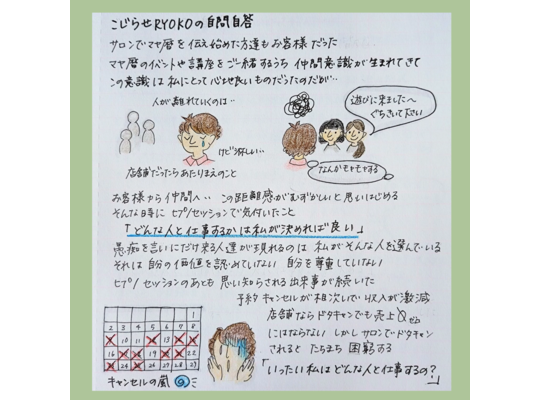 こじらせRYOKOの自問自答
サロンでマヤ暦を伝え始めた方達もお客様だった
マヤ暦のイベントや講座をご一緒するうち 仲間意識が生まれてきて
この意識は私にとって心地良いものだったのだが…
人が離れていくのは…
けど淋しい…
店舗だったらあたりまえのこと
遊びに来ました〜
ぐちきいて下さい
なんかモヤモヤする
お客様から仲間へ… この距離感がむずかしいと思いはじめる
そんな時に セプ/セッションで気付いたこと
「どんな人と仕事するかは私が決めれば良い」
愚痴を言いにだけ来る人達が現れるのは 私がそんな人を選んでいる
それは 自分の価値を認めていない 自分を尊重していない
セプ/セッションのあとも 思い知らされる出来事が続いた
予約キャンセルが相次いで収入が激減
店舗ならドタキャンでも売上0
にはならない しかしサロンでドタキャン
されると たちまち 困窮する
「いったい私はどんな人と仕事するの?」
1
2 3 4 5 6 7 8
10 11 13
キャンセルの嵐